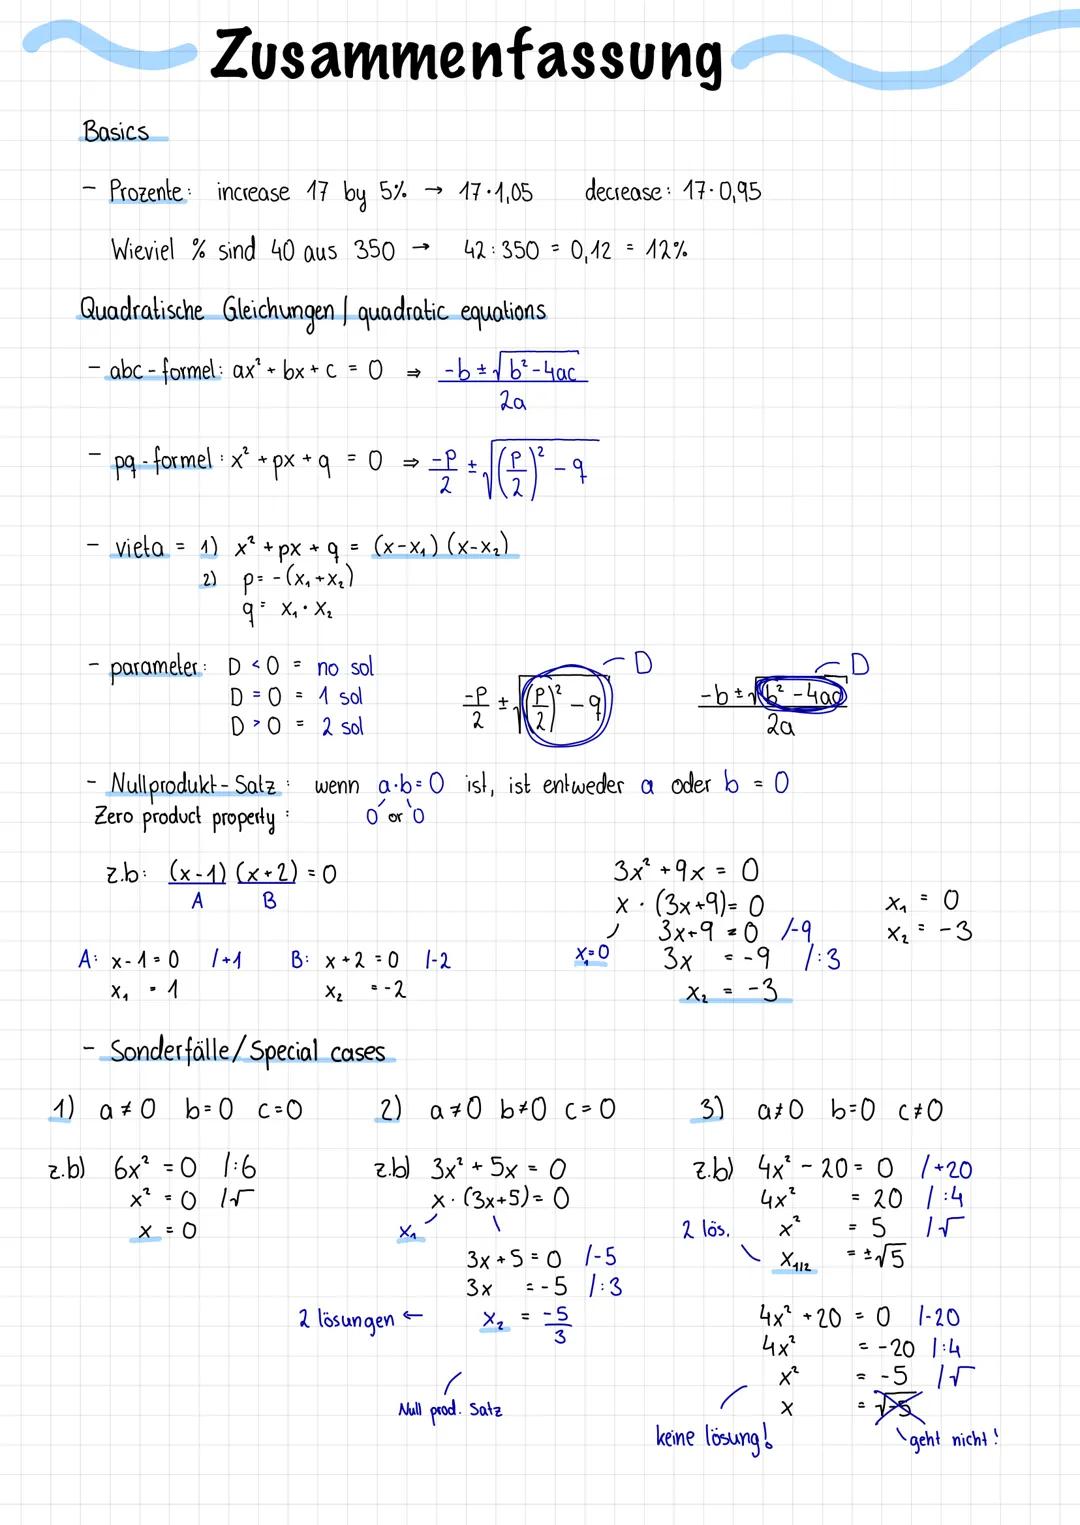 Zusammenfassung
Basics
- Prozente: increase 17 by 5% → 17·1,05 decrease: 17·0,95
Wieviel % sind 40 aus 350 → 42:350 = 0,12 = 12%
Quadratische Gleichungen / quadratic equations
- abc-formel: ax² + bx + c = 0 ⇒ (-b ± √(b²-4ac))/2a
- pq-formel: x² + px + q = 0 ⇒ -p/2 ± √((p/2)² - q)
- vieta = 1) x² + px + q = (x-x₁)(x-x₂)
2) p = -(x₁+x₂)
q = x₁ · x₂
- parameter: D < 0 = no sol
D = 0 = 1 sol
D > 0 = 2 sol
-p/2 ± √((p/2)² - q) D
(-b ± √(b²-4ac))/2a D
- Nullprodukt-Satz: wenn a·b=0 ist, ist entweder a oder b = 0
Zero product property: 0 or 0
z.b: (x-1)(x+2) = 0
A B
A: x-1=0 /+1 B: x+2=0 /-2
x₁ = 1 x₂ = -2
3x² + 9x = 0
x · (3x+9) = 0
x₁=0
3x+9 = 0 /-9
3x = -9 /:3
x₂ = -3
x₁ = 0
x₂ = -3
- Sonderfälle/Special cases
1) a≠0 b=0 c=0
z.b) 6x² = 0 /:6
x² = 0 /√
x = 0
2) a≠0 b≠0 c=0
z.b) 3x² + 5x = 0
x · (3x+5) = 0
x₁
3x+5 = 0 /-5
3x = -5 /:3
2 lösungen ← x₂ = -5/3
Null prod. Satz
3) a≠0 b=0 c≠0
z.b) 4x² - 20 = 0 /+20
4x² = 20 /:4
2 lös. x² = 5 /√
x₁/₂ = ±√5
4x² + 20 = 0 /-20
4x² = -20 /:4
x² = -5 /√
x = √-5
keine lösung! geht nicht!